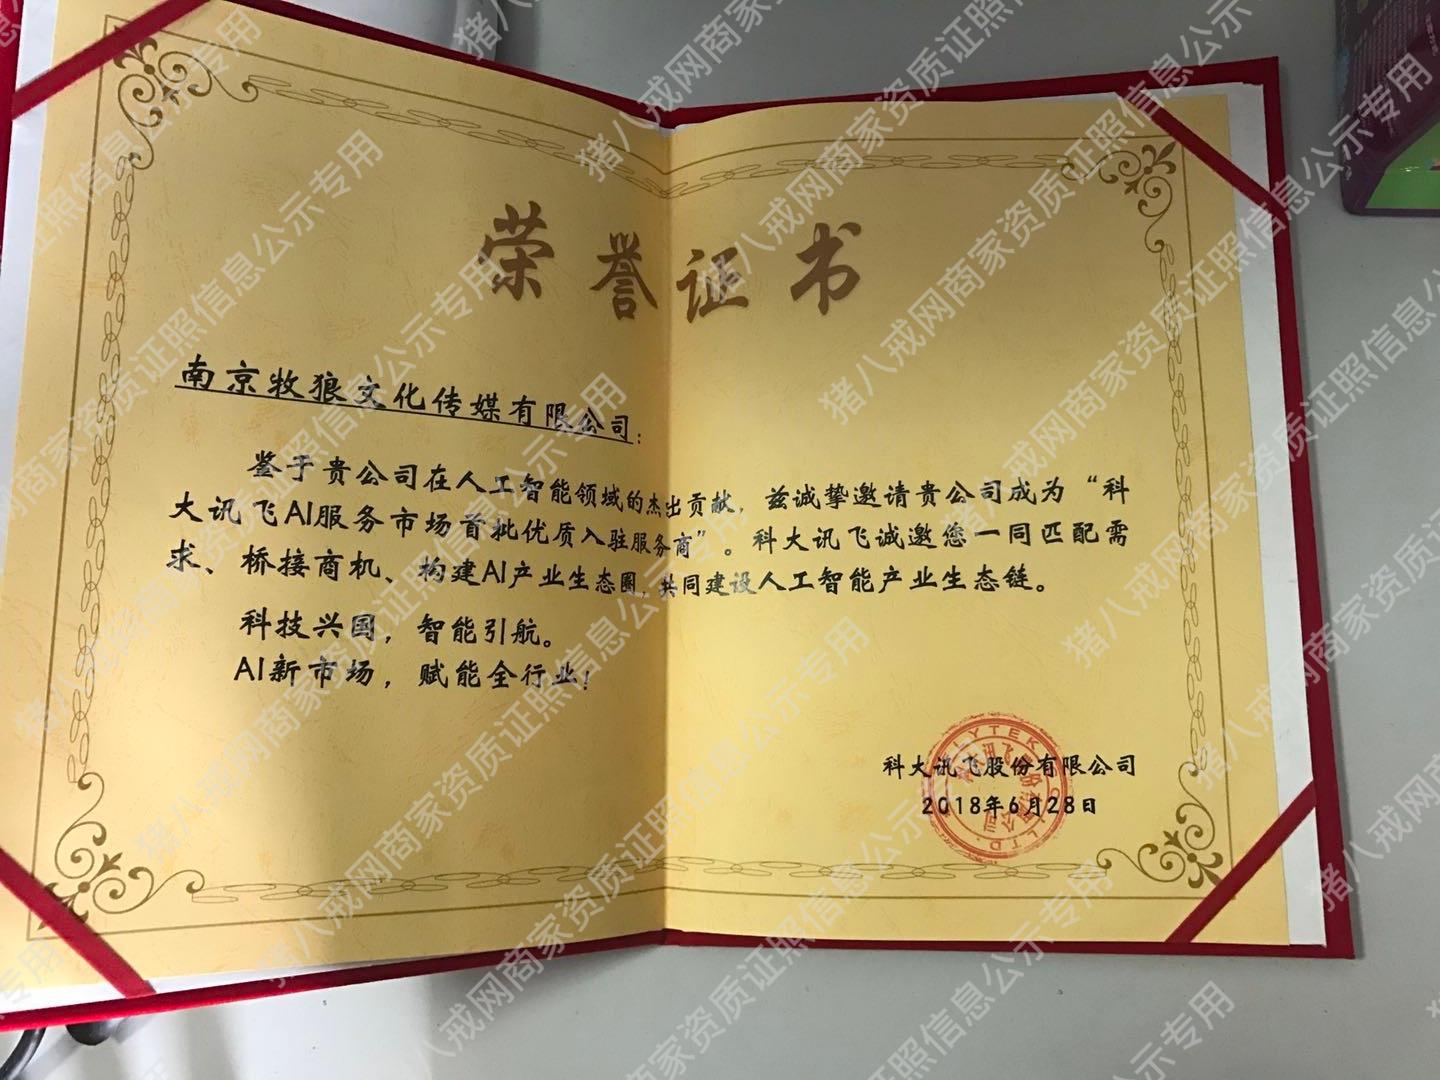 荣誉证书
南京牧狼文化传媒有限公司：
鉴于贵公司在人工智能领域的杰出贡献，兹诚挚邀请贵公司成为“科
大讯飞AI服务市场首批优质入驻服务商”。科大讯飞诚邀您一同匹配需
求、桥接商机、构建AI产业生态圈，共同建设人工智能产业生态链。
科技兴国，智能引航。
AI新市场，赋能全行业！
科大讯飞股份有限公司
2018年6月28日
猪八戒网商家资质证照信息公示专用